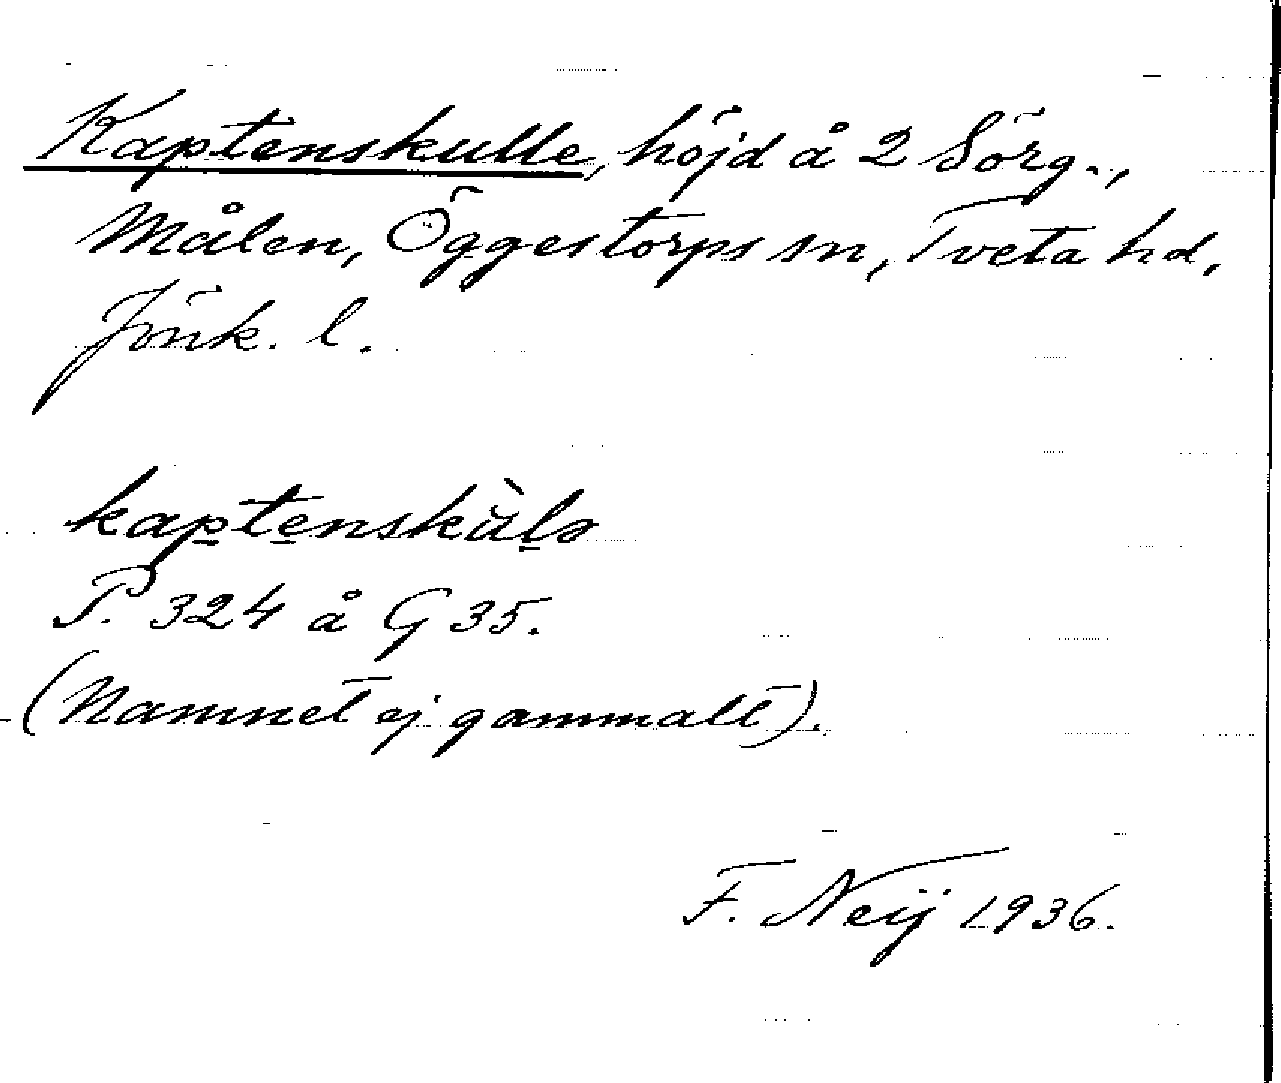 Kaptenskulle, höjd å 2 Sörg.,
Målen, Öggestorps sn, Tveta hd,
Jönk. l.
kaptenskùlə
P. 324 å G 35.
(Namnet ej gammalt).
F. Neij 1936.